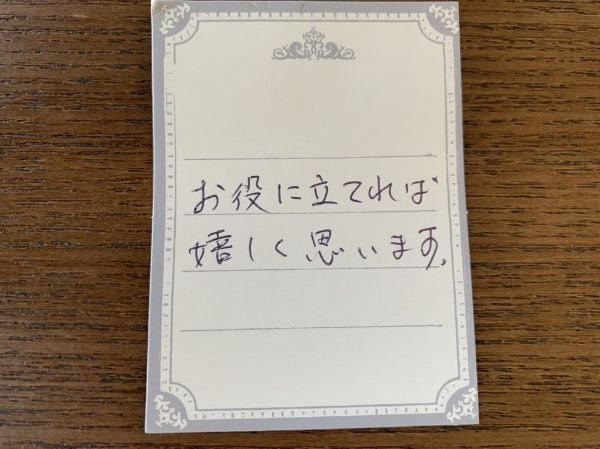 お役に立てれば
嬉しく思います。